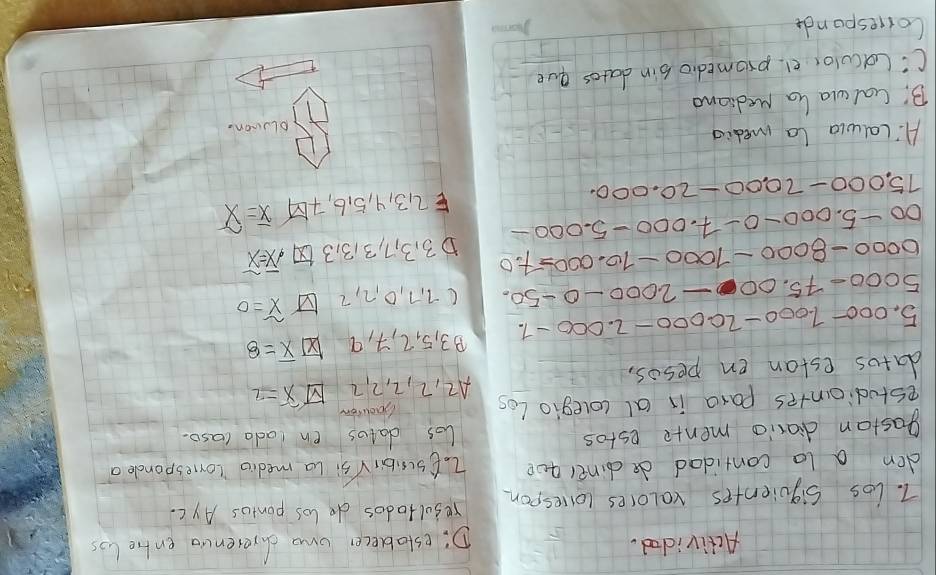 Actividad.
1. Los siguientes valores correspon
den a la cantidad de diner que
gastan daria mente estos
estudiantes para ir al colegio Los
datos estan en pesos.
5.000-1000-20.000-2.000-1.
5000-15.000-2000-0-50.
0000-8000-1000-10.000-7.0
00-5.000-0-7.000-5.000-
15.000-2000-20.000.
A: Calula la media
B: Calula la Mediana
C: Calculor el promedio sin datos que
Corresponde
D: establecer una diferencia entre los
resultados de los pontos A y C.
2. Escribir V si la media corresponde a
los datos en cada caso.
A 2,2,2,2,2,2 x̄=2
B 3,5,2,7,9 x̄=8
C 1,1,0,2,2 x̃=0
D 3,3,7,3,3,3 x̄=x̃
E 2,3,4,5,6,7 x̄=x̃
Solucion.